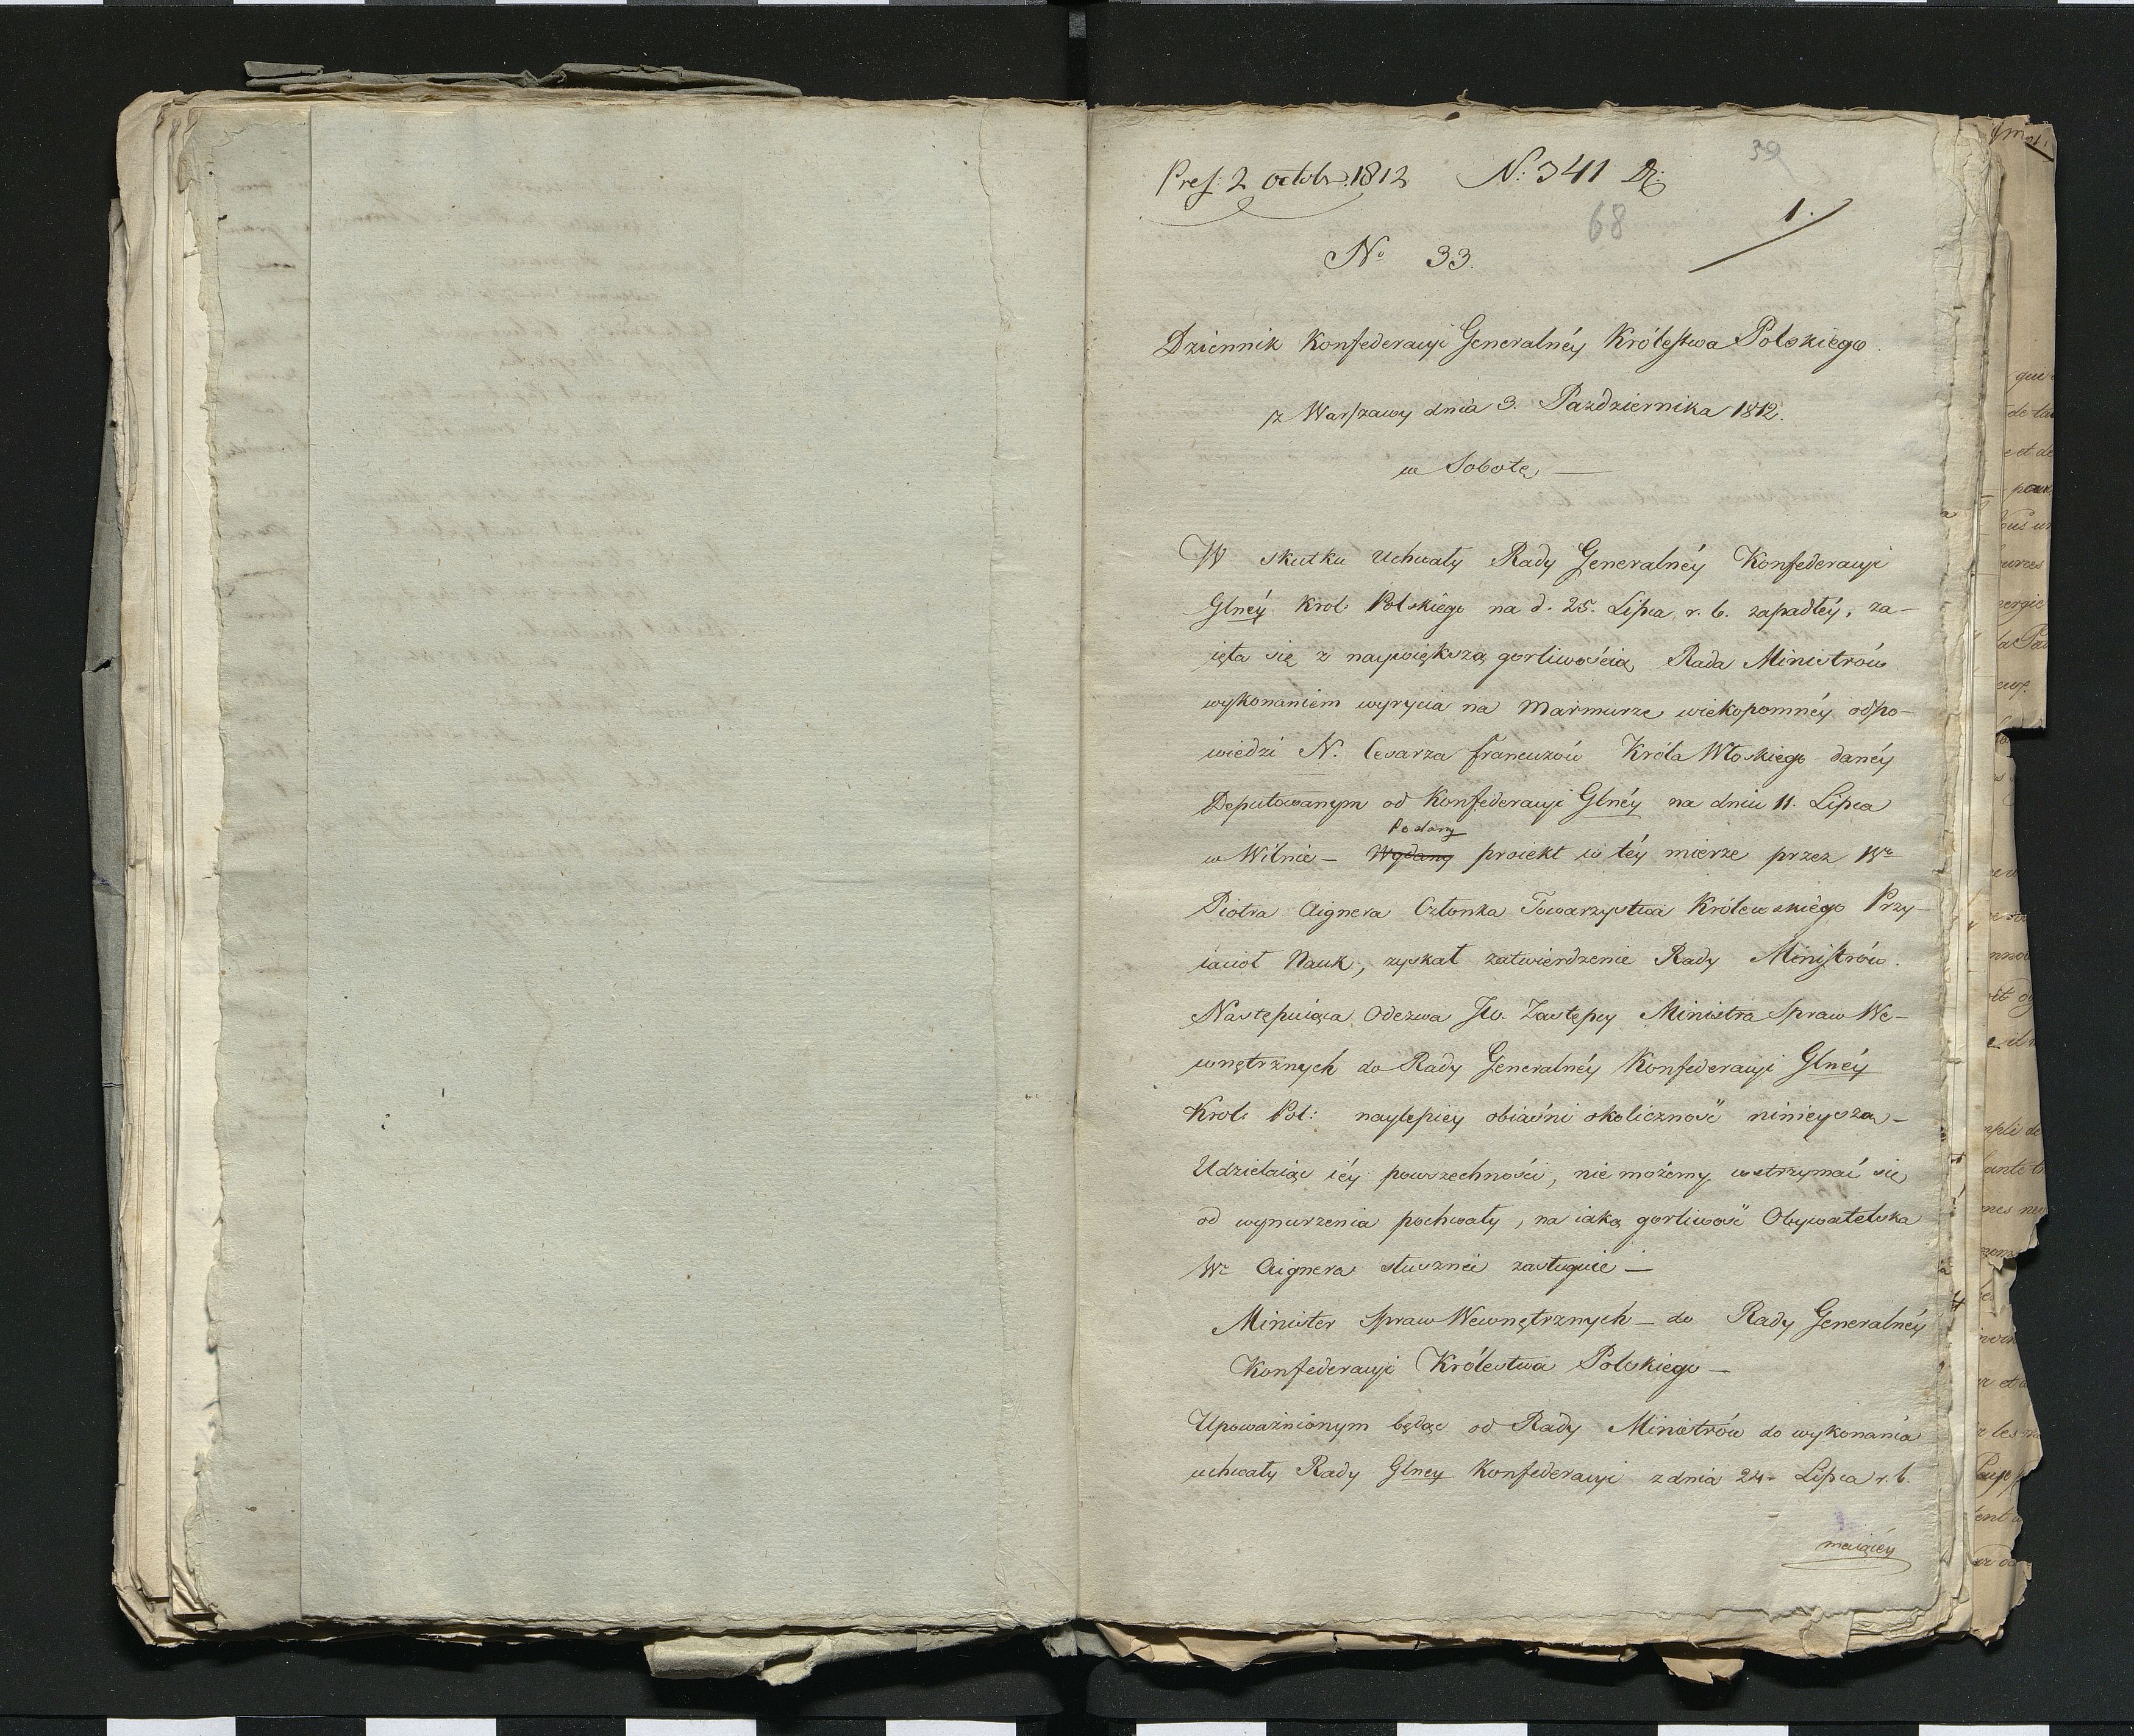 39
Pres: 2 octobr. 1812 N: 341 Dz:
68
1.
No 33.
Dziennik Konfederacyi Generalnéy Królestwa Polskiego.
z Warszawy dnia 3. Pazdziernika 1812.
w Sobotę —
W skutku Uchwały Rady Generalnéy Konfederacyi
Glnéy Krol: Polskiego na d. 25. Lipca r. b. zapadłéy, za-
ięła się z naywiększą gorliwością Rada Ministrów
wykonaniem wyrycia na Marmurze wiekopomnéy odpo-
wiedzi N. Cesarza francuzów Króla Włoskiego danéy
Deputowanym od Konfederacyi Glnéy na dniu 11. Lipca
Podany
w Wilnie — Wydany proiekt w téy mierze przez Wo
Piotra Aignera Członka Towarzystwa Królewskiego Przy-
iaciół Nauk, zyskał zatwierdzenie Rady Ministrów.
Następuiąca Odezwa JW. Zastępcy Ministra Spraw We-
wnętrznych do Rady Generalnéy Konfederacyi Glnéy
Krol: Pol: naylepiey obiaśni okoliczność ninieyszą —
Udzielaiąc iéy powszechności, nie możemy wstrzymać się
od wynurzenia pochwały, na iaką gorliwość Obywatelska
Wo Aignera słusznie zasługuie —
Minister Spraw Wewnętrznych — do Rady Generalnéy
Konfederacyi Królestwa Polskiego —
Upoważnionym będąc od Rady Ministrów do wykonania
uchwały Rady Glney Konfederacyi z dnia 24. Lipca r. b.
maiącéy